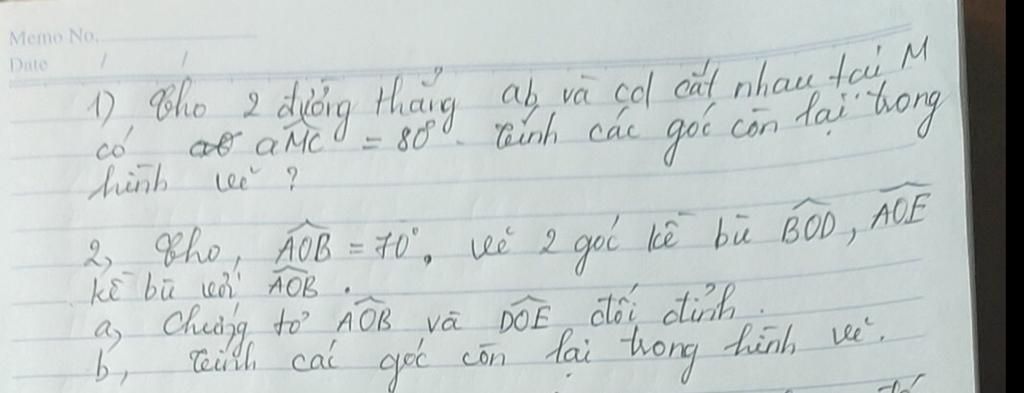 Memo No.
Date / /
1) Cho 2 đường thẳng ab và cd cắt nhau tại M
có aMc = 80°. Tính các góc còn lại trong
hình vẽ?
2, Cho, AOB = 70°, vẽ 2 góc kề bù BOD, AOE
kề bù với AOB.
a, Chứng tỏ AOB và DOE đối đỉnh.
b, Tính các góc còn lại trong hình vẽ.